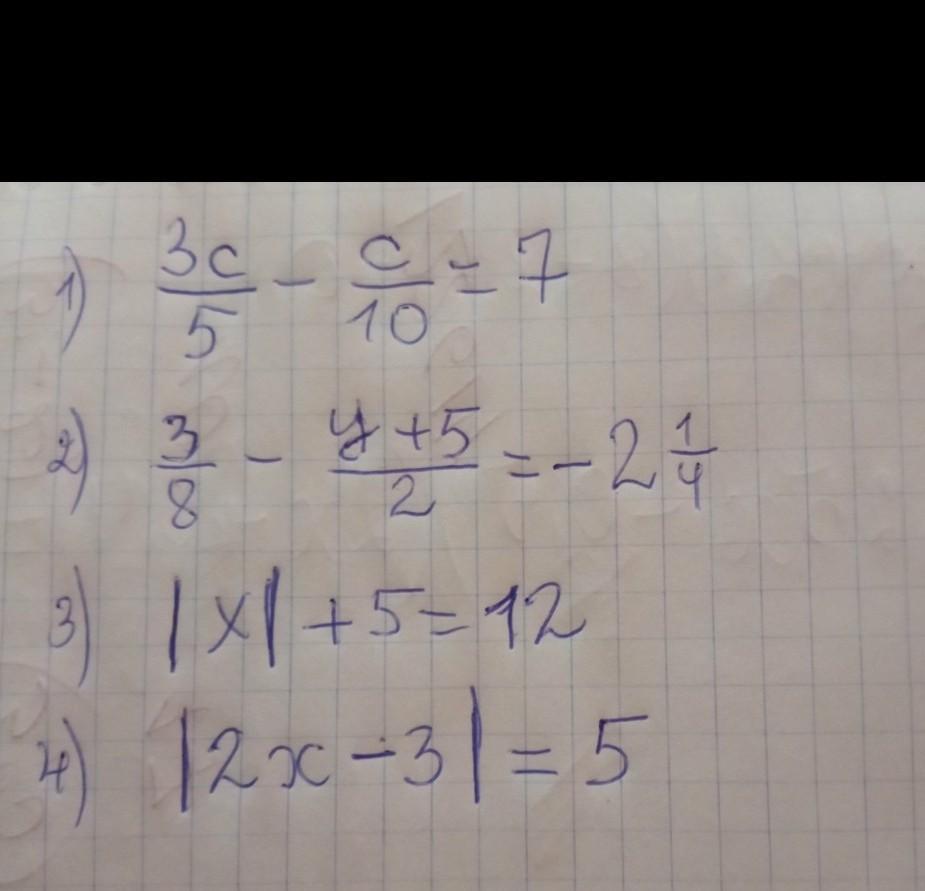 1) 3c/5 - c/10 = 7
2) 3/8 - y+5/2 = -2 1/4
3) |x| + 5 = 12
4) |2x - 3| = 5